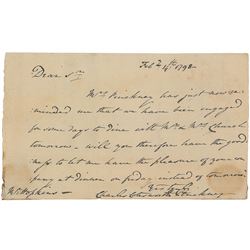 Feby 14th 1792
Dear Sr
Mrs Pinckney has just now re-
minded me that we have been engaged
for some days to dine with Mr & Mrs Church
tomorrow — will you therefore have the good-
ness to let me have the pleasure of your com
pany at dinner on friday instead of tomorrow.
Yrs truly
Charles Cotesworth Pinckney
Mr Hopkins —